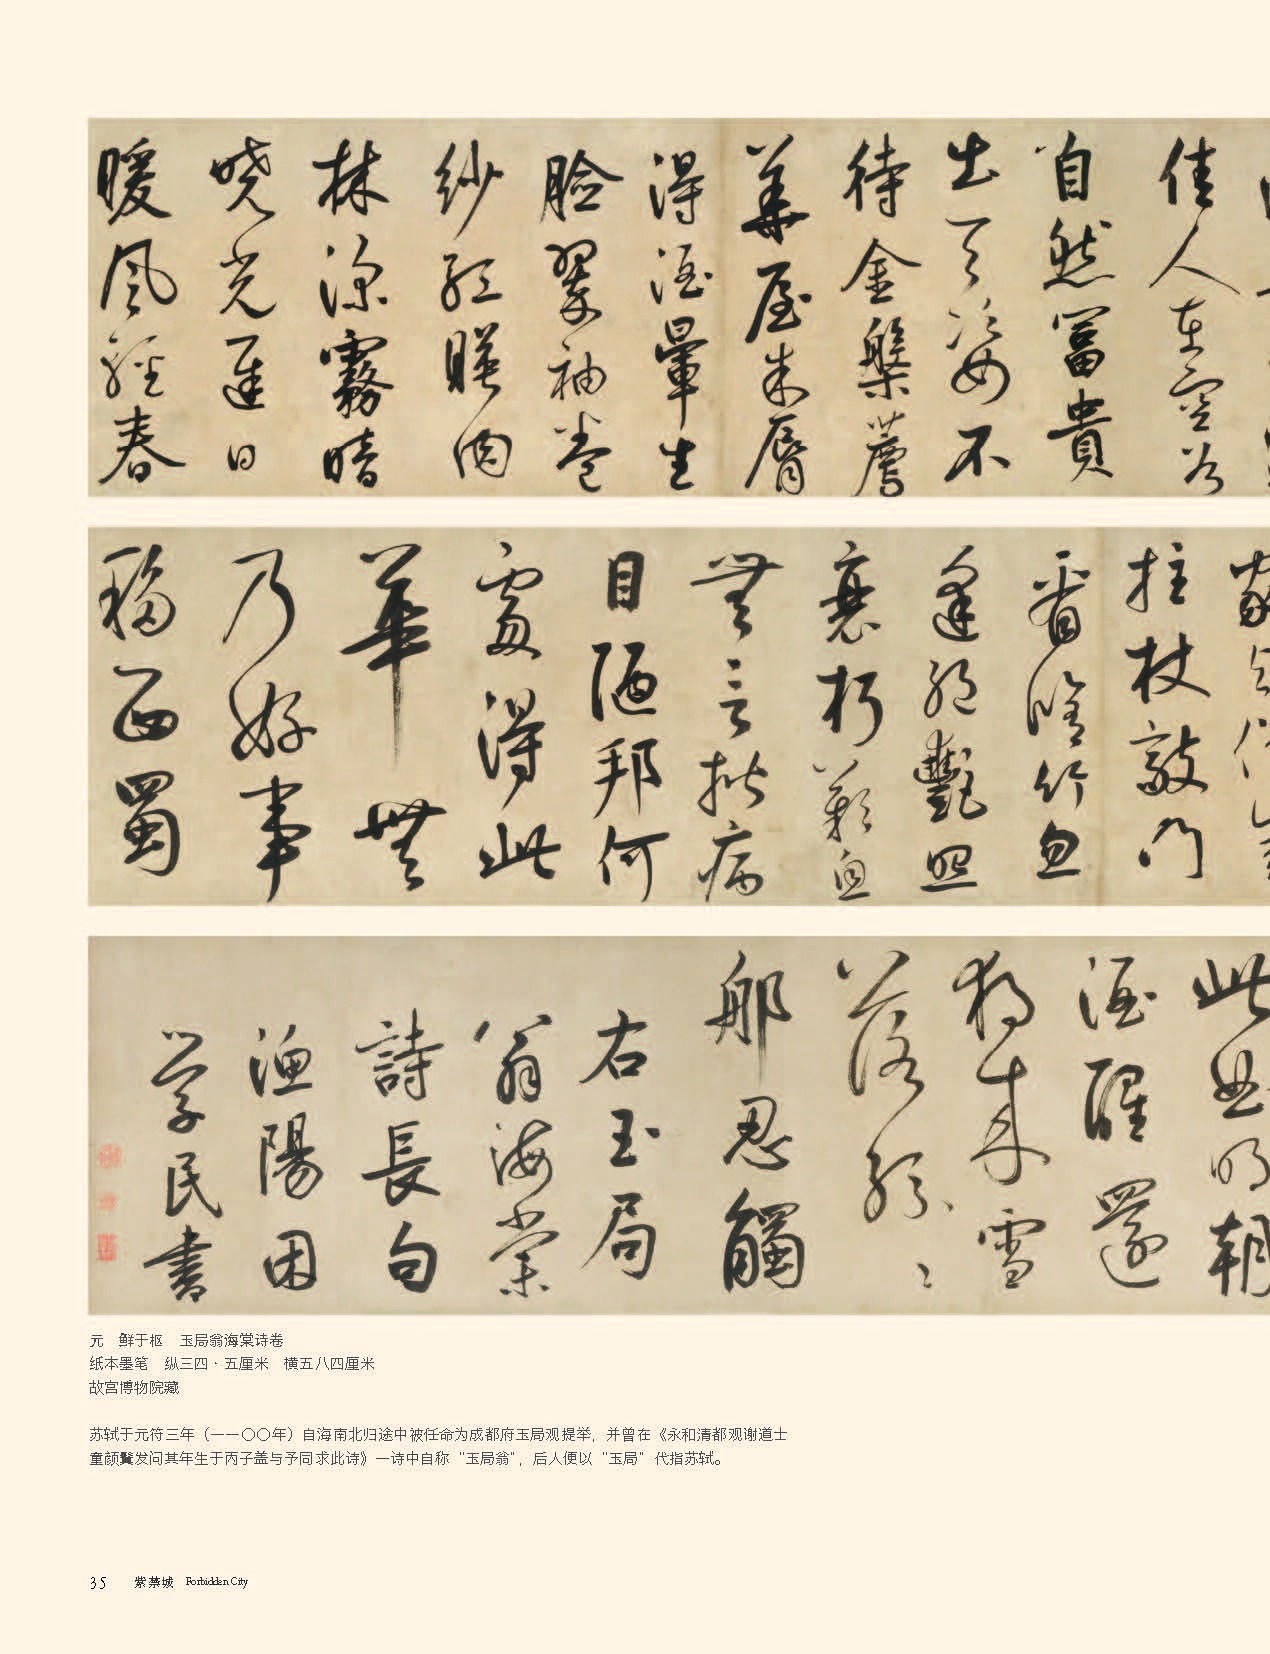 佳人在空谷
自然富貴
出天姿不
待金盤薦
華屋朱脣
得酒暈生
臉翠袖卷
紗紅映肉
林深霧暗
曉光遲日
暖風輕春
拄杖敲門
看脩竹忽
逢絕艷照
衰朽歎息
無言揩病
目陋邦何
處得此
華無
乃好事
移西蜀
此曲明朝
酒醒還
獨來雪
落紛〻
那忍觸
右玉局
翁海棠
詩長句
漁陽困
學民書
元 鲜于枢 玉局翁海棠诗卷
纸本墨笔 纵三四·五厘米 横五八四厘米
故宫博物院藏
苏轼于元符三年（一一〇〇年）自海南北归途中被任命为成都府玉局观提举，并曾在《永和清都观谢道士
童颜鬒发问其年生于丙子盖与予同求此诗》一诗中自称“玉局翁”，后人便以“玉局”代指苏轼。
35 紫禁城 Forbidden City